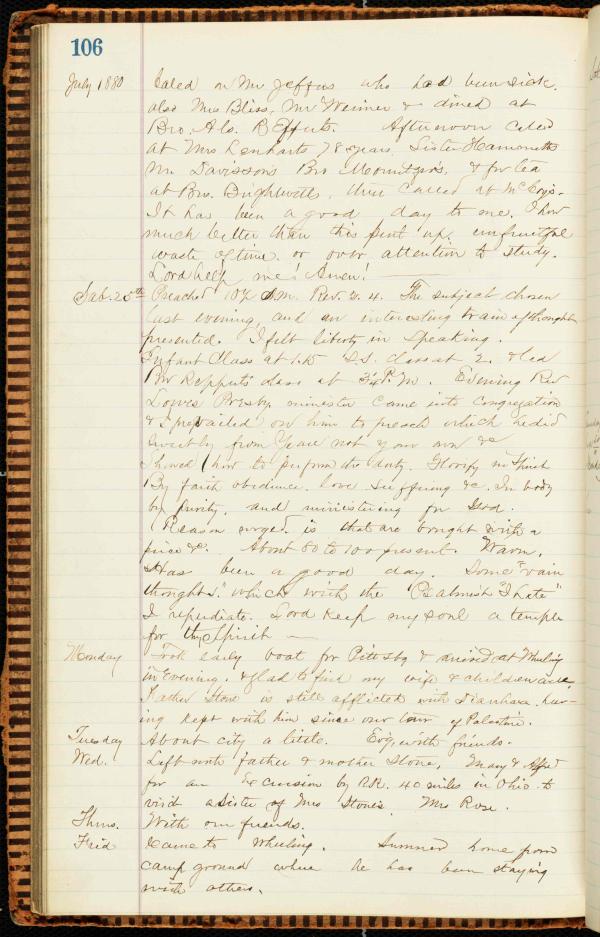 106
July 1880 Called on Mr Jeffers who had been sick.
also Mrs Bliss, Mr Weimer & dined at
Bro. Als. B Efferts. Afternoon called
at Mrs 78 years. Sister
Mr Davisson's Bro Mountjoi's, & for tea
at Bro. Brightwells, then called at McCoys.
It has been a good day to me. O how
much better than this pent up, unfruitful
waste of time, or over attention to study.
Lord help me! Amen!
Sab. 25th Preached 10½ A.M. Rev. 2. 4. The subject chosen
last evening, and an interesting train of thought
presented. I felt liberty in speaking.
Infant Class at 1.15 S.S. class at 2. & led
Bro Repperts class at P.M. Evening Rev
Lowes Presby. minister came into congregation
& I prevailed on him to preach which he did
sweetly from Ye are not your own &c
Showed how to perform the duty. Glorify in Spirit
By faith obedience, love suffering &c. In body
by purity, and ministering for God.
Reason urged, is that are bought with a
price &c. About 80 to 100 present. Warm.
Has been a good day. Some "vain
thoughts" which with the Psalmist "I hate"
I repudiate. Lord keep my soul a temple
for thy Spirit —
Monday Took early boat for Pittsbg & arrived at Wheeling
in Evening. & glad to find my wife & children well.
Father Stone is still afflicted with Diarrhoea hav-
ing kept with him since our tour of Palestine.
Tuesday About city a little. Evg with friends.
Wed. Left with father & mother Stone, Mary & Alfred
for an Excursion by R.R. 40 miles in Ohio to
visit a sister of Mrs Stones. Mrs Rose.
Thurs. With our friends.
Frid Came to Wheeling. Sumner home from
camp ground where he has been staying
with others.